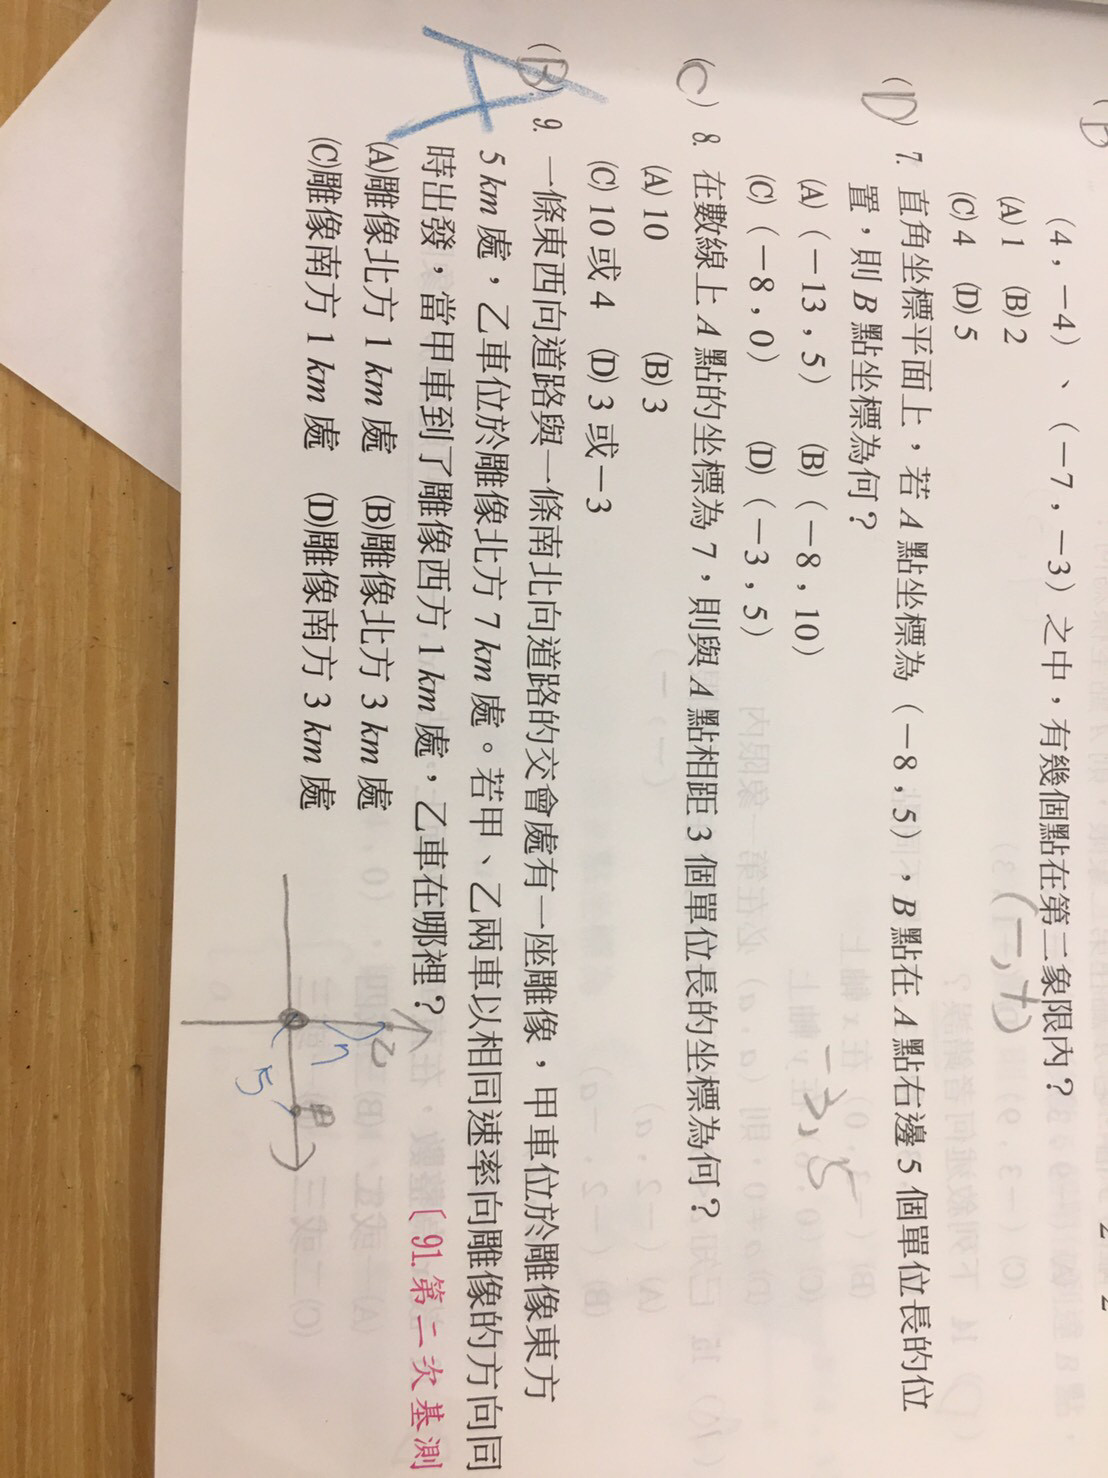 (4，－4)、(－7，－3)之中，有幾個點在第二象限內？
(－,＋)
(A) 1 (B) 2
(C) 4 (D) 5
(D) 7. 直角坐標平面上，若A點坐標為(－8，5)，B點在A點右邊5個單位長的位
置，則B點坐標為何？
－3, 5
(A)(－13，5) (B)(－8，10)
(C)(－8，0) (D)(－3，5)
(C) 8. 在數線上A點的坐標為7，則與A點相距3個單位長的坐標為何？
(A) 10 (B) 3
(C) 10或4 (D) 3或－3
(B) 9. 一條東西向道路與一條南北向道路的交會處有一座雕像，甲車位於雕像東方
A
5 km處，乙車位於雕像北方7 km處。若甲、乙兩車以相同速率向雕像的方向同
時出發，當甲車到了雕像西方1 km處，乙車在哪裡？〔91.第二次基測
(A)雕像北方1 km處 (B)雕像北方3 km處
(C)雕像南方1 km處 (D)雕像南方3 km處
乙
7
甲
5